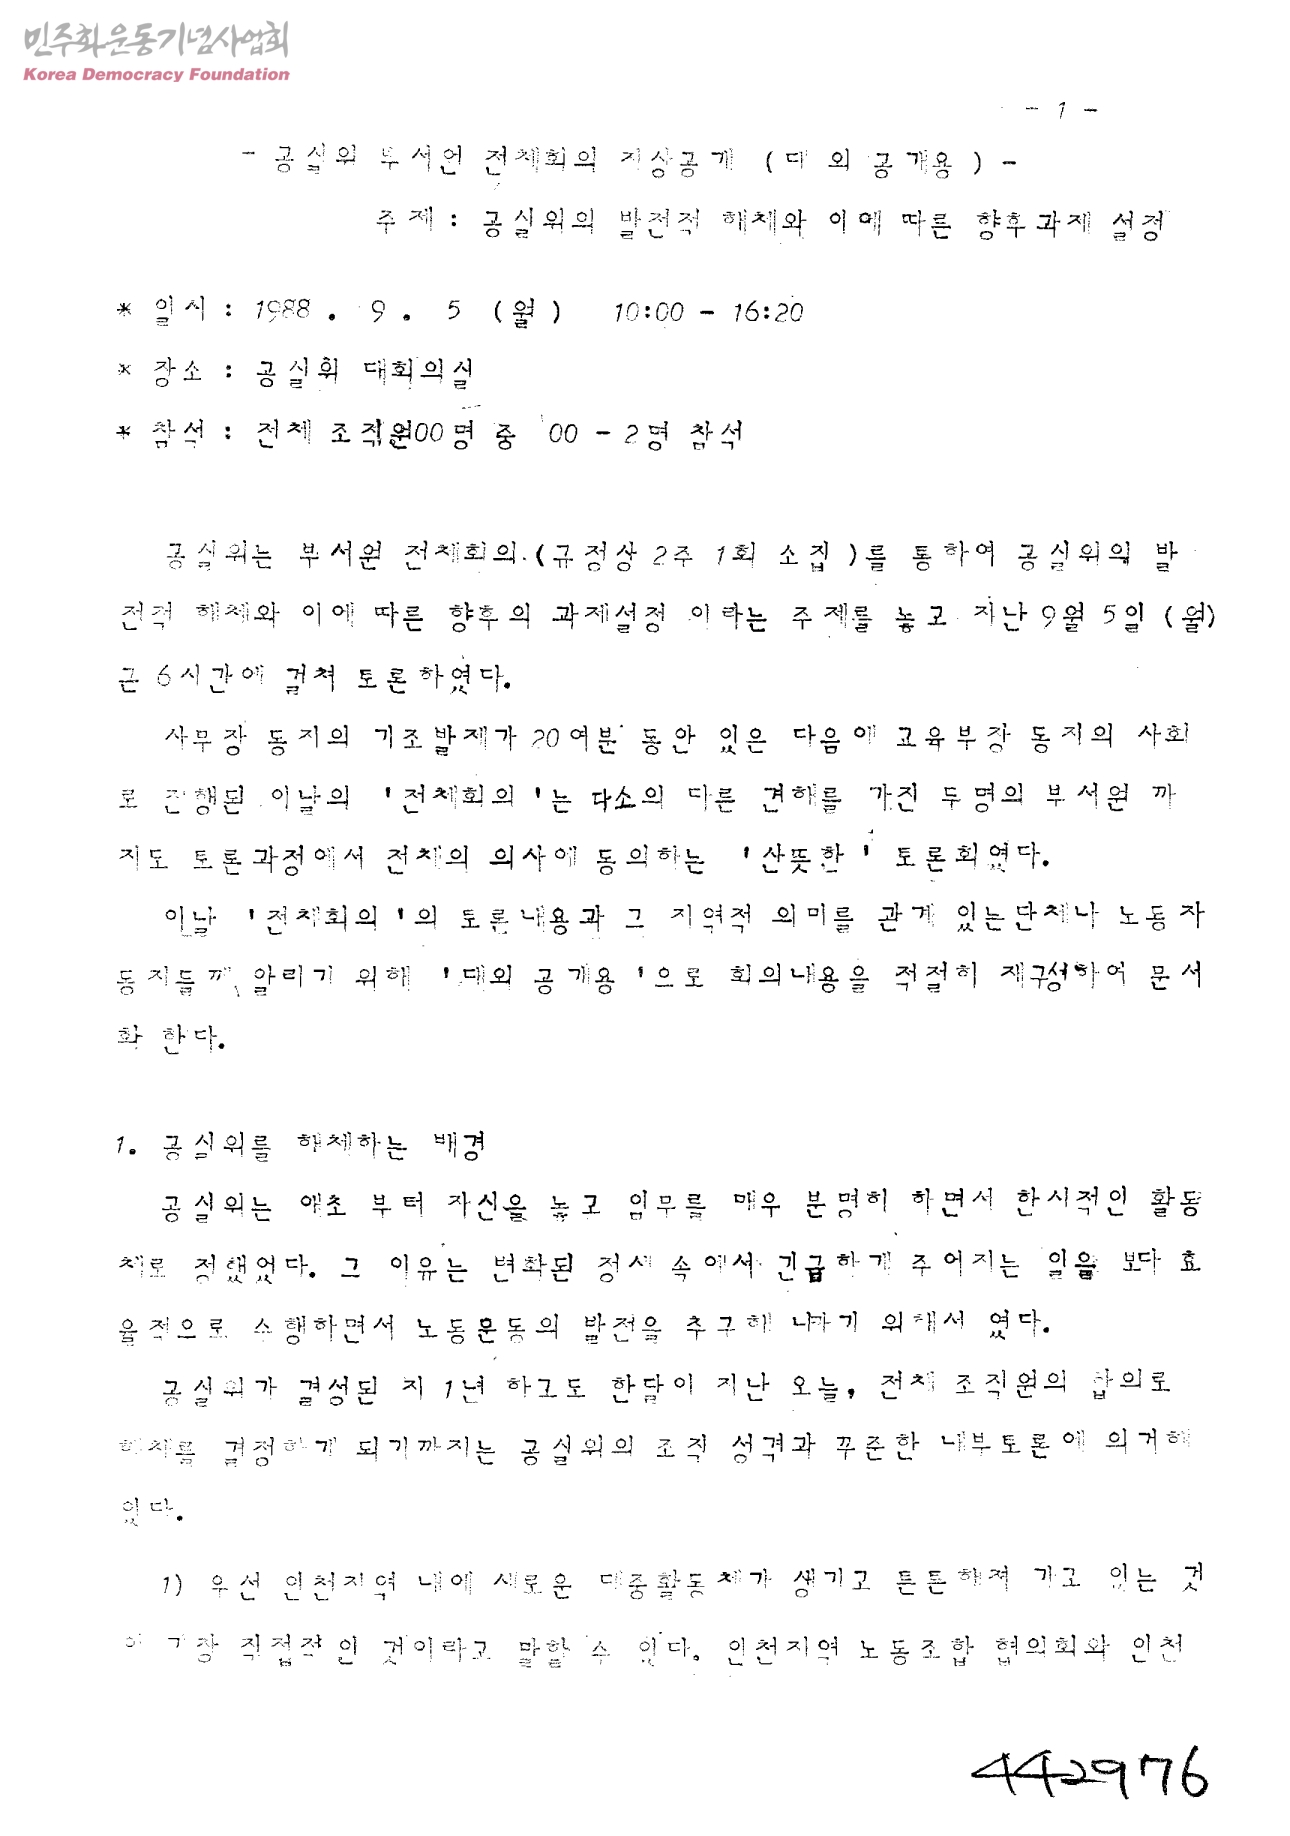 민주화운동기념사업회
Korea Democracy Foundation
- 1 -
- 공실위 부서원 전체회의 지상공개 (대외 공개용) -
주제 : 공실위의 발전적 해체와 이에 따른 향후과제 설정
* 일시 : 1988 . 9 . 5 (월) 10:00 - 16:20
* 장소 : 공실위 대회의실
* 참석 : 전체 조직원00명 중 00 - 2명 참석
공실위는 부서원 전체회의 (규정상 2주 1회 소집)를 통하여 공실위의 발
전적 해체와 이에 따른 향후의 과제설정 이라는 주제를 놓고 지난 9월 5일 (월)
근 6시간에 걸쳐 토론하였다.
사무장 동지의 기조발제가 20여분 동안 있은 다음에 교육부장 동지의 사회
로 진행된 이날의 '전체회의'는 다소의 다른 견해를 가진 두명의 부서원 까
지도 토론과정에서 전체의 의사에 동의하는 '산뜻한' 토론회였다.
이날 '전체회의'의 토론내용과 그 지역적 의미를 관계 있는단체나 노동자
동지들께 알리기 위해 '대외 공개용'으로 회의내용을 적절히 재구성하여 문서
화 한다.
1. 공실위를 해체하는 배경
공실위는 애초 부터 자신을 놓고 임무를 매우 분명히 하면서 한시적인 활동
체로 정했었다. 그 이유는 변화된 정세 속에서 긴급하게 주어지는 일을 보다 효
율적으로 수행하면서 노동운동의 발전을 추구해 나가기 위해서 였다.
공실위가 결성된 지 1년 하고도 한달이 지난 오늘, 전체 조직원의 합의로
해체를 결정하게 되기까지는 공실위의 조직 성격과 꾸준한 내부토론에 의거해
있다.
1) 우선 인천지역 내에 새로운 대중활동체가 생기고 튼튼해져 가고 있는 것
이 가장 직접적인 것이라고 말할 수 있다. 인천지역 노동조합 협의회와 인천
442976